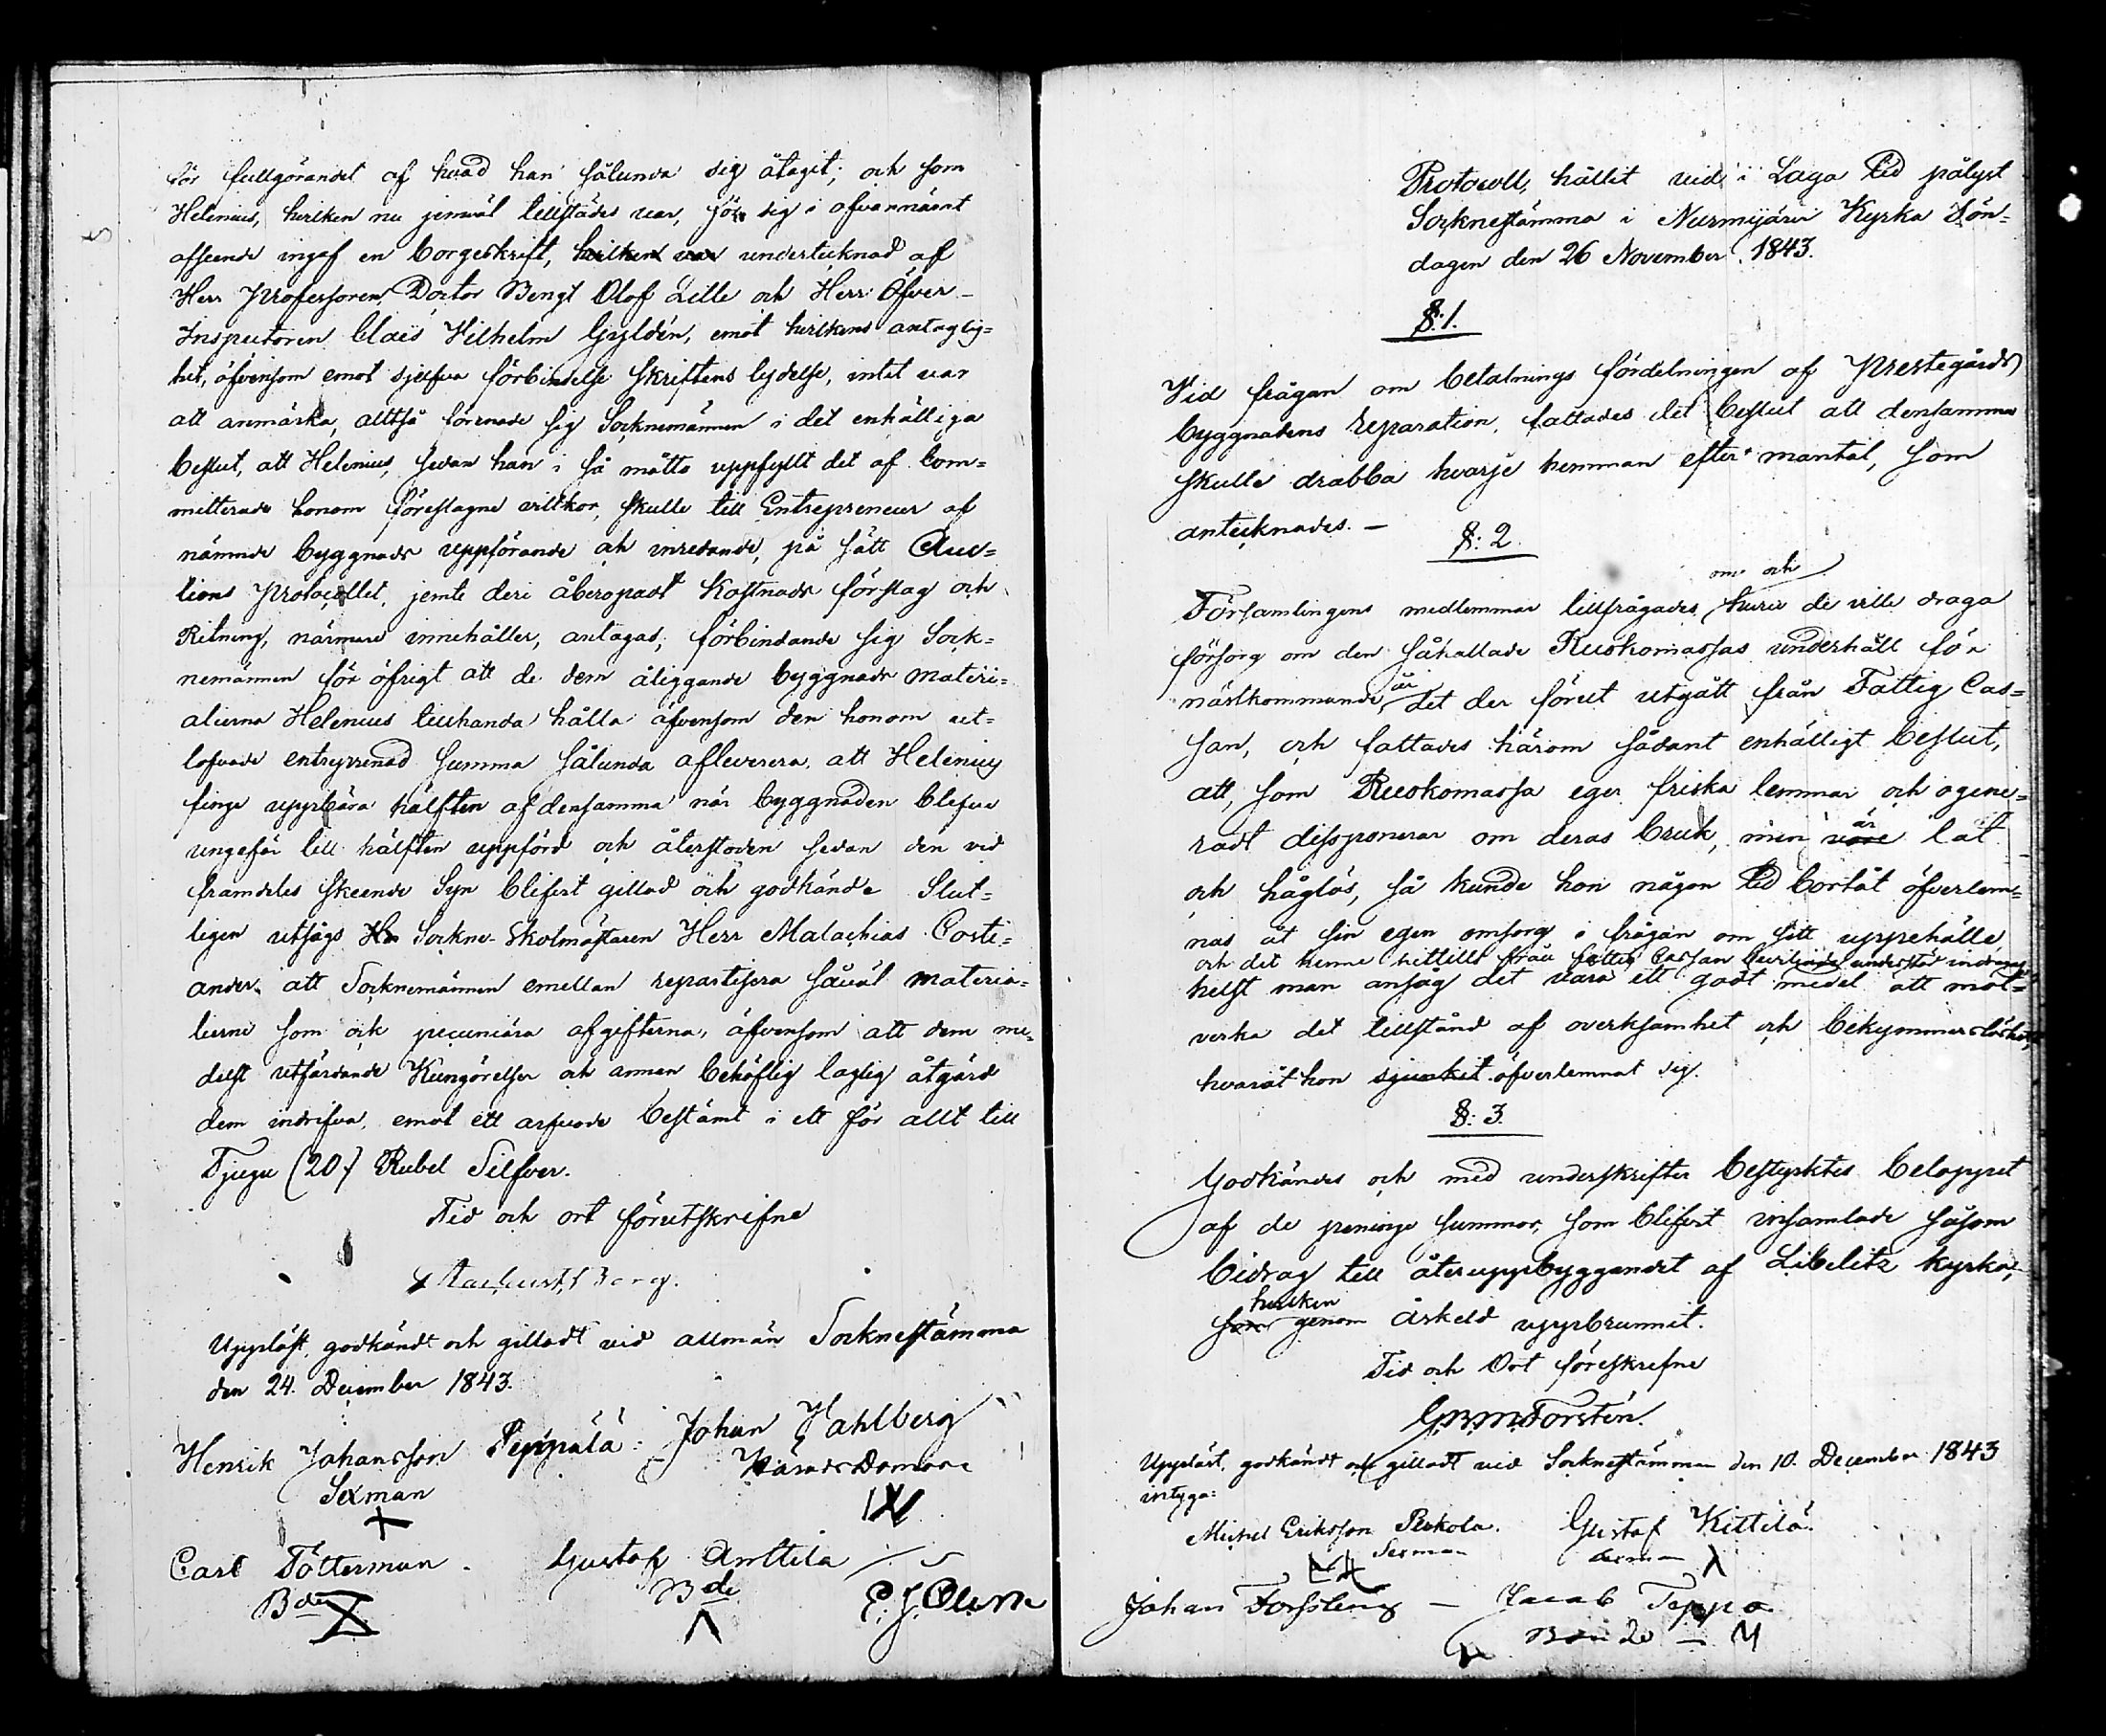 för fullgörandet af hvad han sålunda sig åtagit; och som
Helenius, hvilken nu jemväl tillstädes var, för sig i ofvannämt
afseende ingaf en borgeskrift, hvilken var undertecknad af
Herr Professoren, Doctor Bengt Olof Lille och Herr Öfver-
Inspectoren Claës Wilhelm Gyldén, emot hvilkens antaglig=
het, äfvensom emot sjelfva förbindelse skriftens lydelse, intet var
att anmärka, alltså förenade sig Socknemännen i det enhälliga
beslut, att Helenius, sedan han i så måtto uppfyllt det af Com=
mitterade honom föreslagne villkor, skulle till Entrepreneur af
nämnde byggnads uppförande och inredande, på sätt Auc=
tions Protocollet, jemte deri åberopadt Kostnads förslag och
Ritning, närmare innehåller, antagas; förbindande sig Sock=
nemännen för öfrigt att de dem åliggande byggnads materi=
alierna Helenius tillhanda hålla äfvensom den honom ut=
lofvade entreprenad summa sålunda aflevererа, att Helenius
finge uppbära hälften af densamma när byggnaden blefve
ungefär till hälften uppförd och återstoden sedan den vid
framdeles skeende Syn blifvit gillad och godkänd. Slut=
ligen utsågs Hr Sockne-Skolmästaren Herr Malachias Costi=
ander att Socknemännen emellan repartisera såväl materia=
lierne som ock pecuniära afgifterna, äfvensom att dem me=
delst utfärdande Kungörelser och annan behöflig laglig åtgärd
dem indrifva, emot ett arfvode bestämt i ett för allt till
Tjugu (20) Rubel Silfver.
Tid och ort förutskrifne
Upplöst, godkändt och gilladt vid allmän Socknestämma
den 24. December 1843.
Henrik Johansson Peppälä: Johan Wahlberg
Sexman Härads Domare
Carl Tötterman. Gustaf Anttila
Bde Bde
Protocoll, hållit vid i Laga tid pålyst
Socknestämma i Nurmijärvi Kyrka Sön=
dagen den 26 November 1843.
§: 1.
Vid frågan om betalnings fördelningen af Prestegårds
byggnadens reparation, fattades det beslut att densamma
skulle drabba hvarje hemman efter mantal, som
antecknades. —
§: 2.
om och
Församlingens medlemmar tillfrågades, huru de ville draga
försorg om den såkallade Ruskomassas underhåll för
nästkommande år det der förut utgått från Fattig Cas=
san, och fattades härom sådant enhälligt beslut,
att, som Ruskomassa eger friska lemmar och ogene=
radt dissponerar om deras bruk, men vore är lat
och håglös, så kunde hon någon tid bortåt öfverlem=
nas åt sin egen omsorg i frågan om sitt uppehälle,
och det henne hittills från fattig Cassan beviljade understöd indragas
helst man ansåg det vara ett godt medel att mot=
verka det tillstånd af overksamhet och bekymmerslöshet,
hvaråt hon sjunkit öfverlemnat sig.
§: 3.
Godkändes och med underskrifter bestyrktes beloppet
af de penninge summor, som blifvit insamlade såsom
bidrag till återuppbyggandet af Libelitz kyrka,
hvilken
som genom åskeld uppbrunnit.
Tid och Ort föreskrefne
G.W.M. Forstén.
Uppläst, godkändt och gilladt vid Socknestämman den 10. December 1843
intyga:
Michel Eriksson Perkola. Gustaf Kittilä.
Sexman Sexman
Johan Forssling — Jacob Teppo